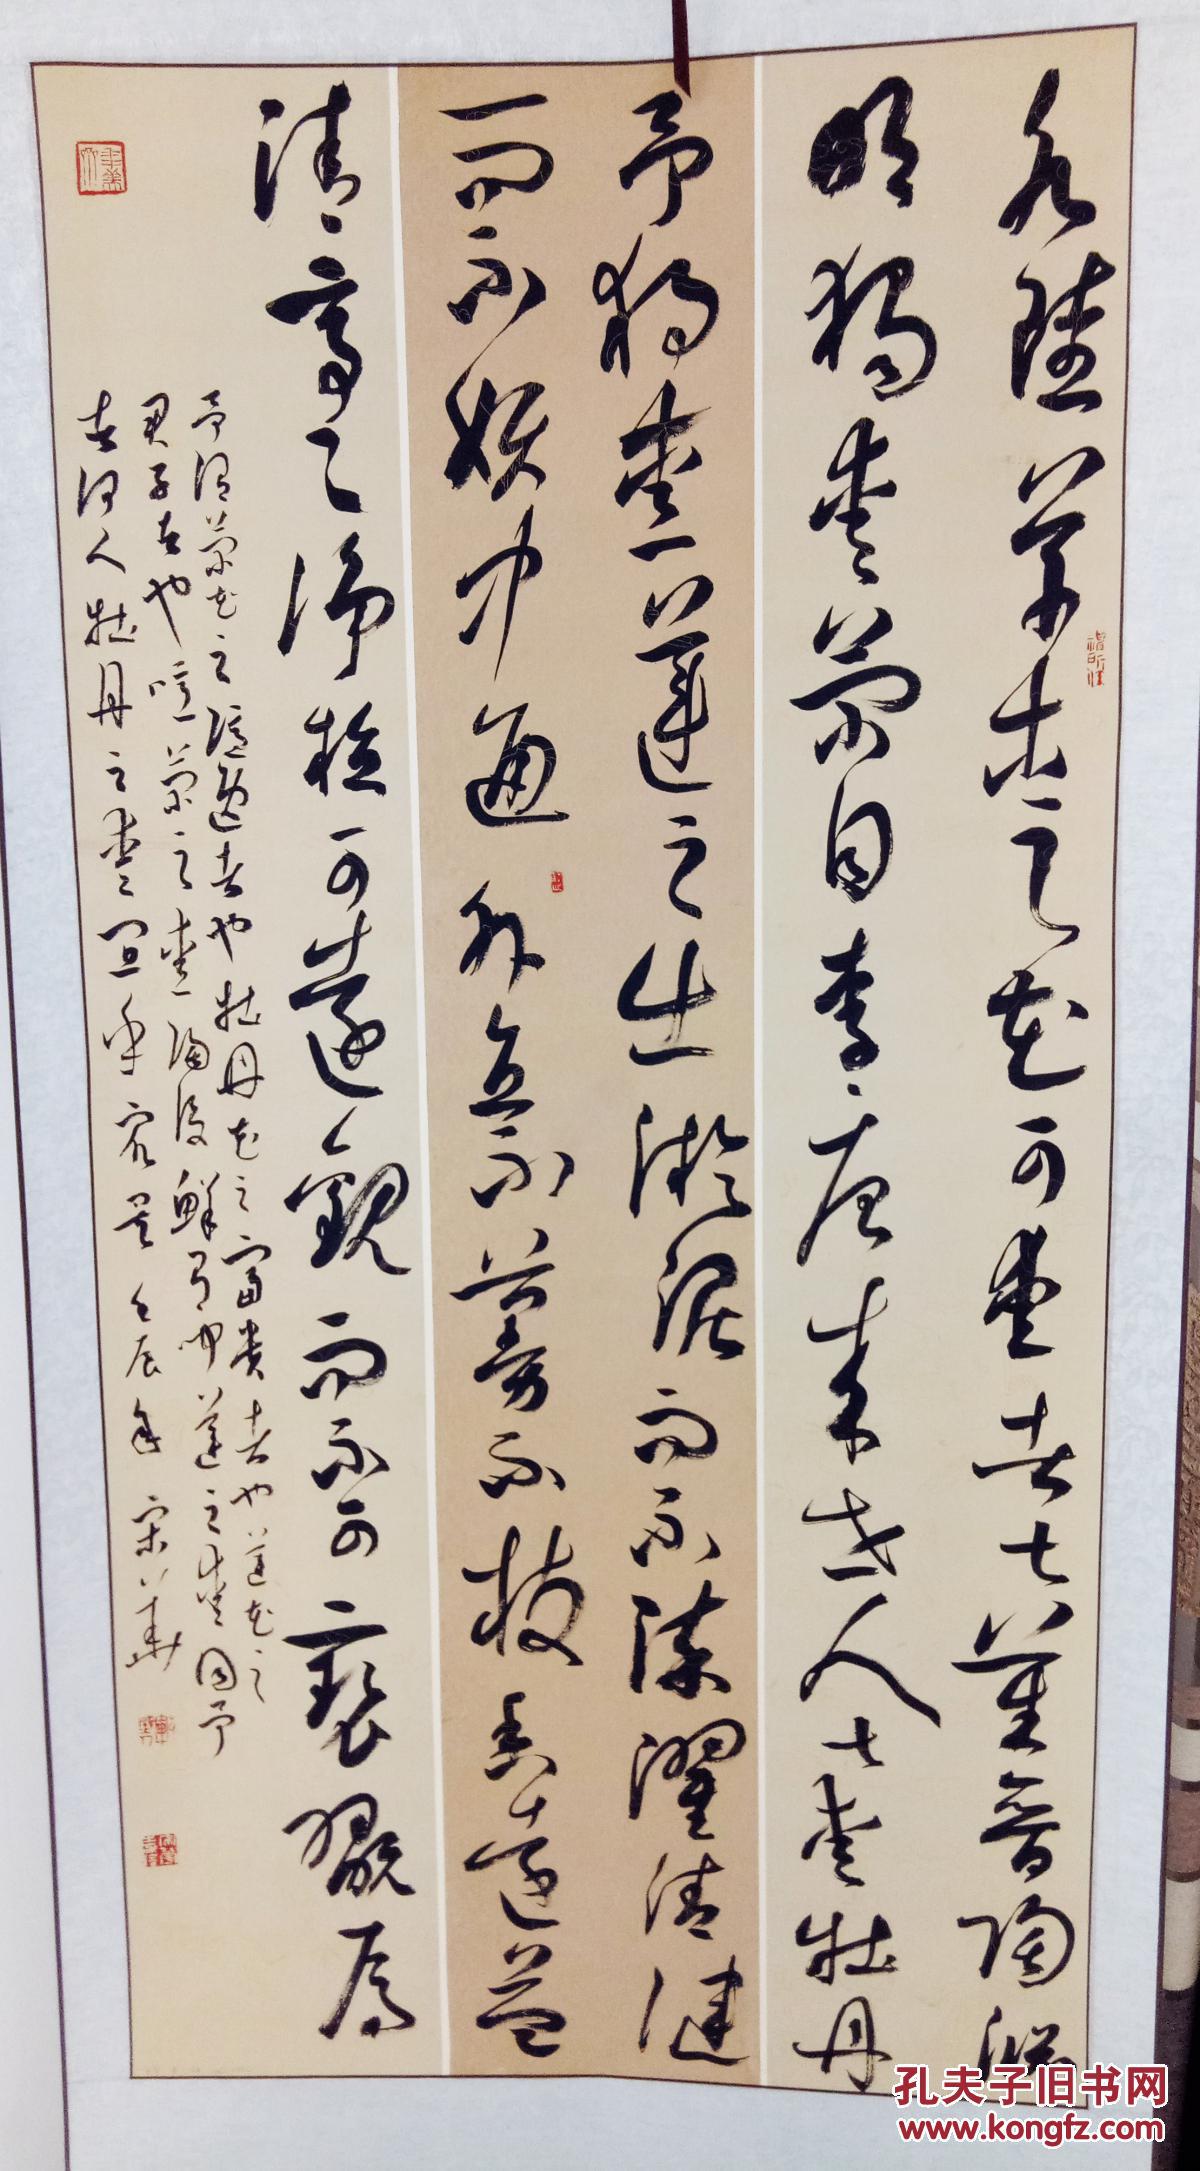 水陸草木之花可愛者甚蕃晉陶淵
明獨愛菊自李唐來世人甚愛牡丹
予獨愛蓮之出淤泥而不染濯清漣
而不妖中通外直不蔓不枝香遠益
清亭々淨植可遠觀而不可褻翫焉
予謂菊花之隱逸者也牡丹花之富貴者也蓮花之
君子者也噫菊之愛陶後鮮有聞蓮之愛同予
者何人牡丹之愛宜乎眾矣 壬辰年 宋華
孔夫子旧书网
www.kongfz.com